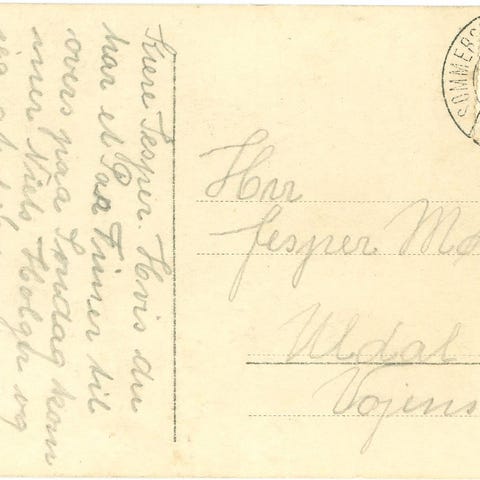 Kære Jesper. Hvis du
har et Par Timer til
overs paa Søndag kom
mer Niels Holger og
jeg
SOMMERS
Hrr
Jesper M
Uldal
Vojens